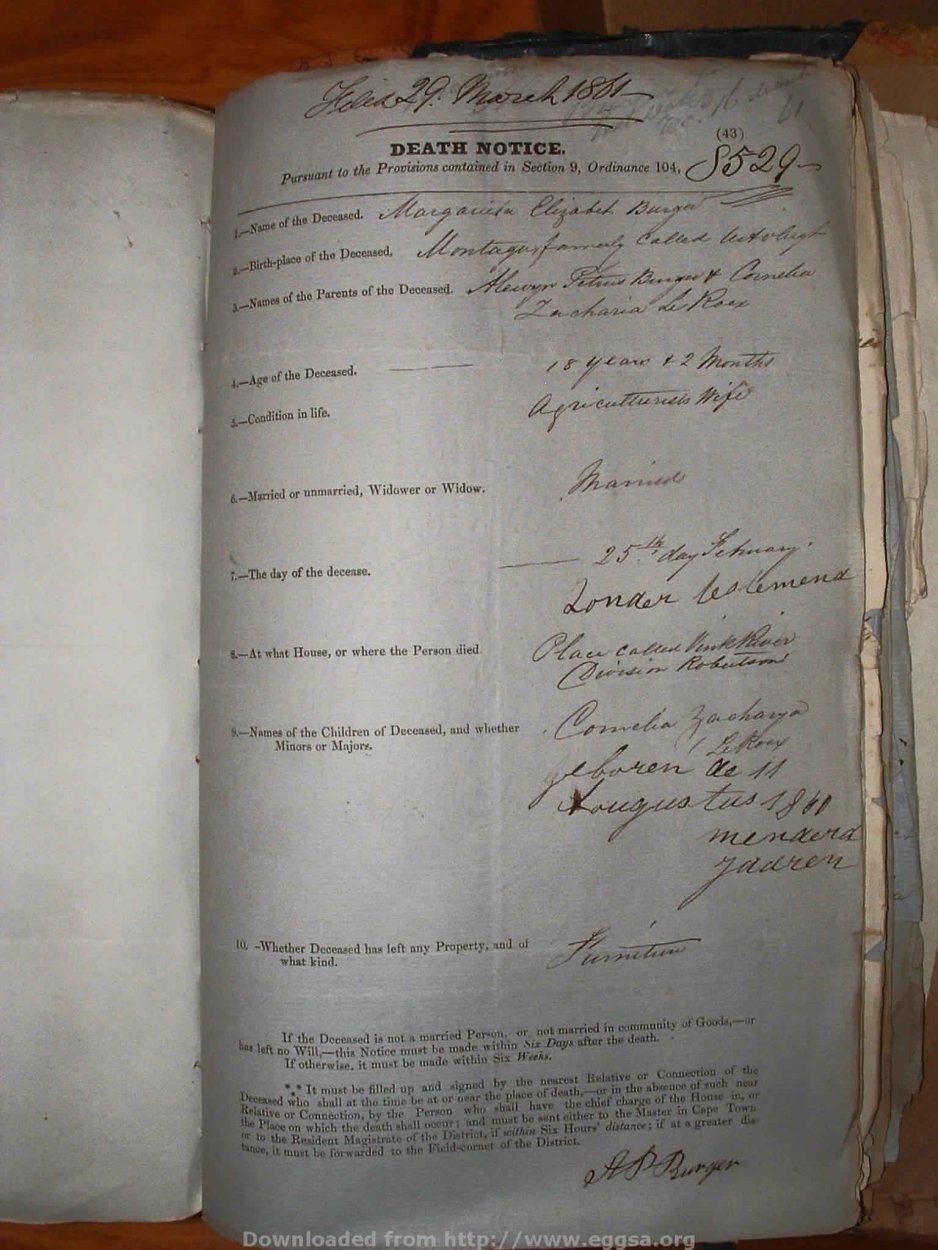 Filed 29. March 1861
(43)
DEATH NOTICE.
Pursuant to the Provisions contained in Section 9, Ordinance 104,
8529
1.—Name of the Deceased. Margarieta Elizabeth Burger
2.—Birth-place of the Deceased. Montague, formerly called
3.—Names of the Parents of the Deceased. Alewyn Petrus Burger & Cornelia
Zacharia Le Roex
4.—Age of the Deceased. 18 years & 2 Months
5.—Condition in life. Agriculturists Wife
6.—Married or unmarried, Widower or Widow. Married
7.—The day of the decease. 25th day February.
Zonder testemend
8.—At what House, or where the Person died Place called Vink River
Division Robertson
9.—Names of the Children of Deceased, and whether Cornelia Zacharya
Minors or Majors. Le Roex
geboren de 11
Aougustus 1860
10. -Whether Deceased has left any Property, and of Furniture
what kind.
If the Deceased is not a married Person, or not married in community of Goods,—or
has left no Will,—this Notice must be made within Six Days after the death.
If otherwise, it must be made within Six Weeks.
*** It must be filled up and signed by the nearest Relative or Connection of the
Deceased who shall at the time be at or near the place of death,—or in the absence of such near
Relative or Connection, by the Person who shall have the chief charge of the House in, or
the Place on which the death shall occur; and must be sent either to the Master in Cape Town
or to the Resident Magistrate of the District, if within Six Hours' distance; if at a greater dis-
tance, it must be forwarded to the Field-cornet of the District.
A P Burger
Downloaded from http://www.eggsa.org